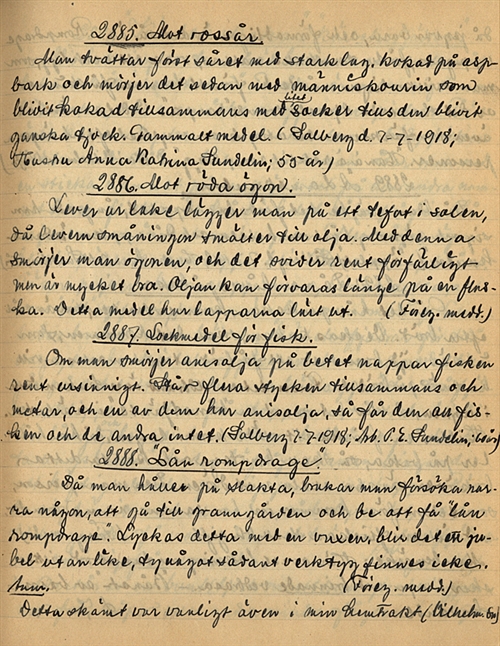 2885. Mot rossår.
Man tvättar först såret med stark lug. kokad på asp-
bark och smörjer det sedan med människourin som
blivit kokad tillsammans med litet socker tills den blivit
ganska tjock. Gammalt medel. (Solberg d. 7-7-1918;
Hustru Anna Katrina Sundelin; 55 år)
2886. Mot röda ögon.
Lever ur lake lägger man på ett tefat i solen,
då levern småningom smälter till olja. Med denna
smörjer man ögonen, och det svider rent förfärligt
men är mycket bra. Oljan kan förvaras länge på en flas-
ka. Detta medel har lapparna lärt ut. (Föreg. medd.)
2887. Lockmedel för fisk.
Om man smörjer anisolja på betet nappar fisken
rent ursinnigt. Står flera stycken tillsammans och
metar, och en av dem har anisolja, så får den all fis-
ken och de andra intet. (Solberg 7-7-1918; Arb. P. E. Sundelin; 60 år)
2888. "Lån rompdrage".
Då man håller på slakta, brukar man försöka nar-
ra någon, att gå till granngården och be att få "lån
rompdrage". Lyckas detta med en vuxen, blir det ett ju-
bel utan like, ty något sådant verktyg finnes icke.
(Föreg. medd.)
Detta skämt var vanligt även i min hemtrakt (Vilhelm. )